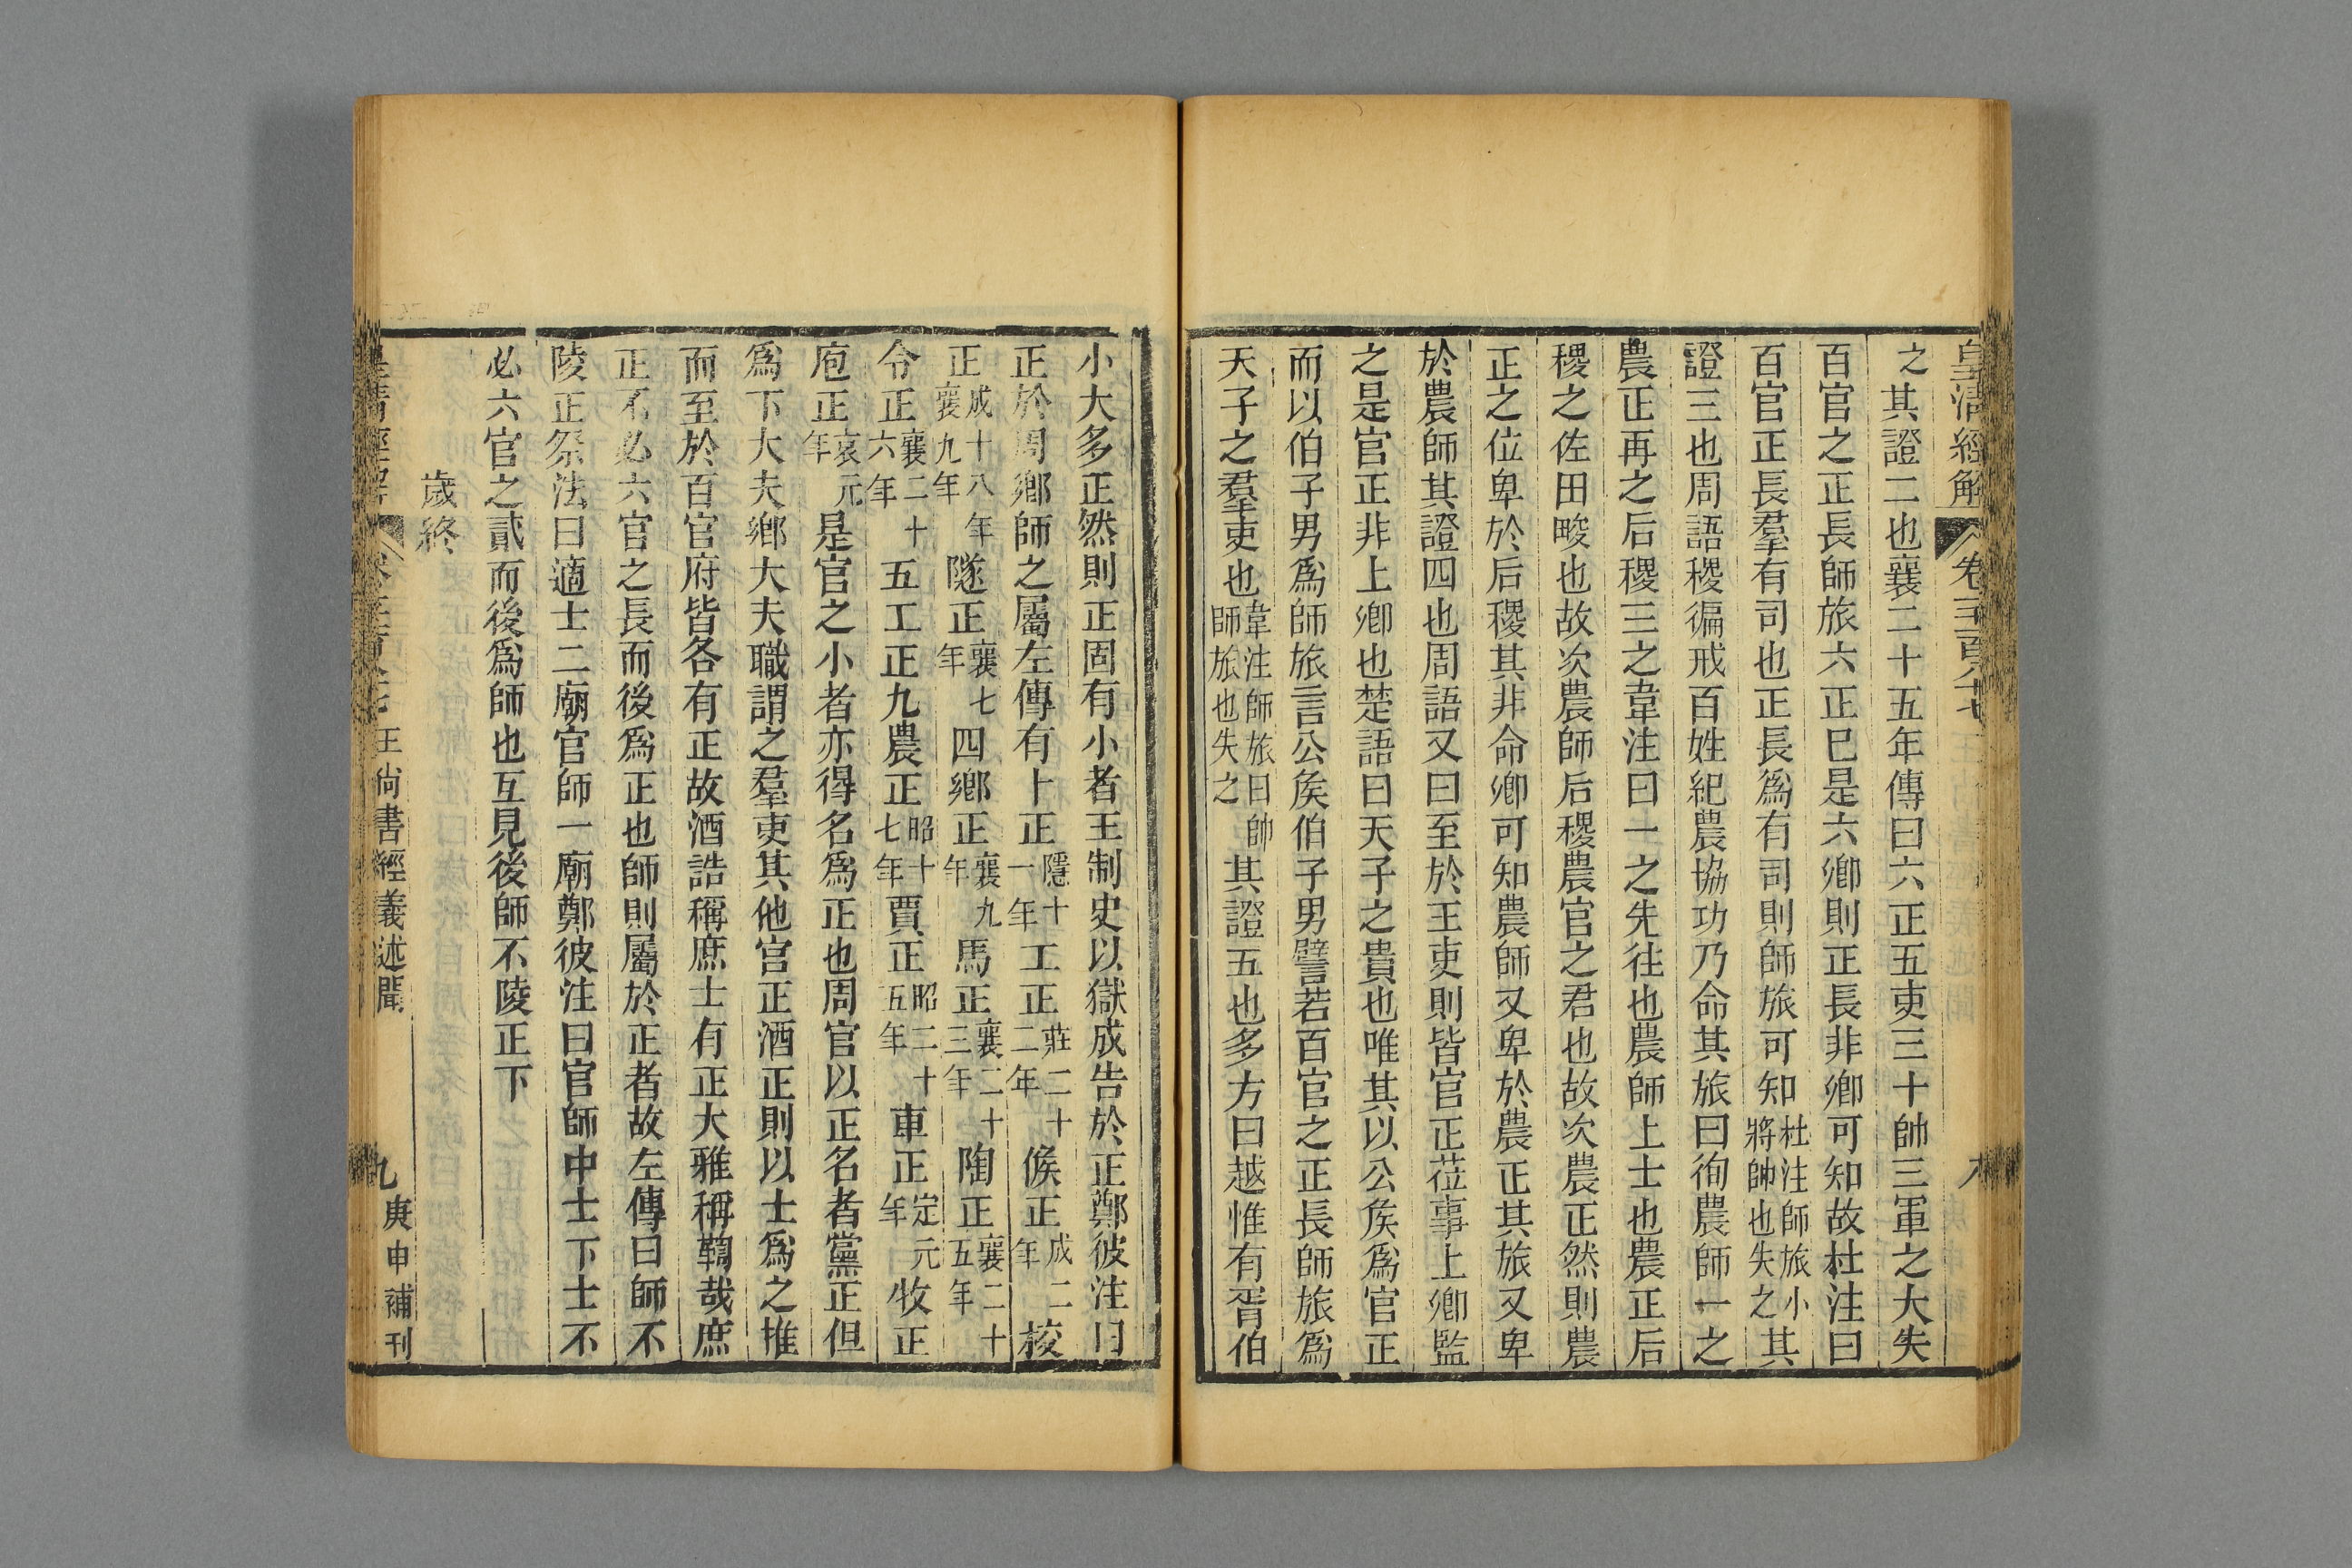 皇清經解
卷三百八十七
八
之其證二也襄二十五年傳曰六正五吏三十帥三軍之大夫
百官之正長師旅六正巳是六卿則正長非卿可知故杜注曰
百官正長羣有司也正長爲有司則師旅可知杜注師旅小將帥也失之其
證三也周語稷徧戒百姓紀農協功乃命其旅曰徇農師一之
農正再之后稷三之韋注曰一之先往也農師上士也農正后
稷之佐田畯也故次農師后稷農官之君也故次農正然則農
正之位卑於后稷其非命卿可知農師又卑於農正其旅又卑
於農師其證四也周語又曰至於王吏則皆官正莅事上卿監
之是官正非上卿也楚語曰天子之貴也唯其以公矦爲官正
而以伯子男爲師旅言公矦伯子男譬若百官之正長師旅爲
天子之羣吏也韋注師旅曰帥師旅也失之其證五也多方曰越惟有胥伯
小大多正然則正固有小者王制史以獄成告於正鄭彼注曰
正於周鄉師之屬左傳有卜正隱十一年工正莊二十二年候正成二年校
正成十八年襄九年隧正襄七年四鄉正襄九年馬正襄二十三年陶正襄二十五年
令正襄二十六年五工正九農正昭十七年賈正昭二十五年車正定元年牧正
庖正哀元年是官之小者亦得名爲正也周官以正名者黨正但
爲下大夫鄉大夫職謂之羣吏其他官正酒正則以士爲之推
而至於百官府皆各有正故酒誥稱庶士有正大雅稱鞫哉庶
正不必六官之長而後爲正也師則屬於正者故左傳曰師不
陵正祭法曰適士二廟官師一廟鄭彼注曰官師中士下士不
必六官之貳而後爲師也互見後師不陵正下
歲終
皇清經解
王尚書經義述聞
九
庚申補刊